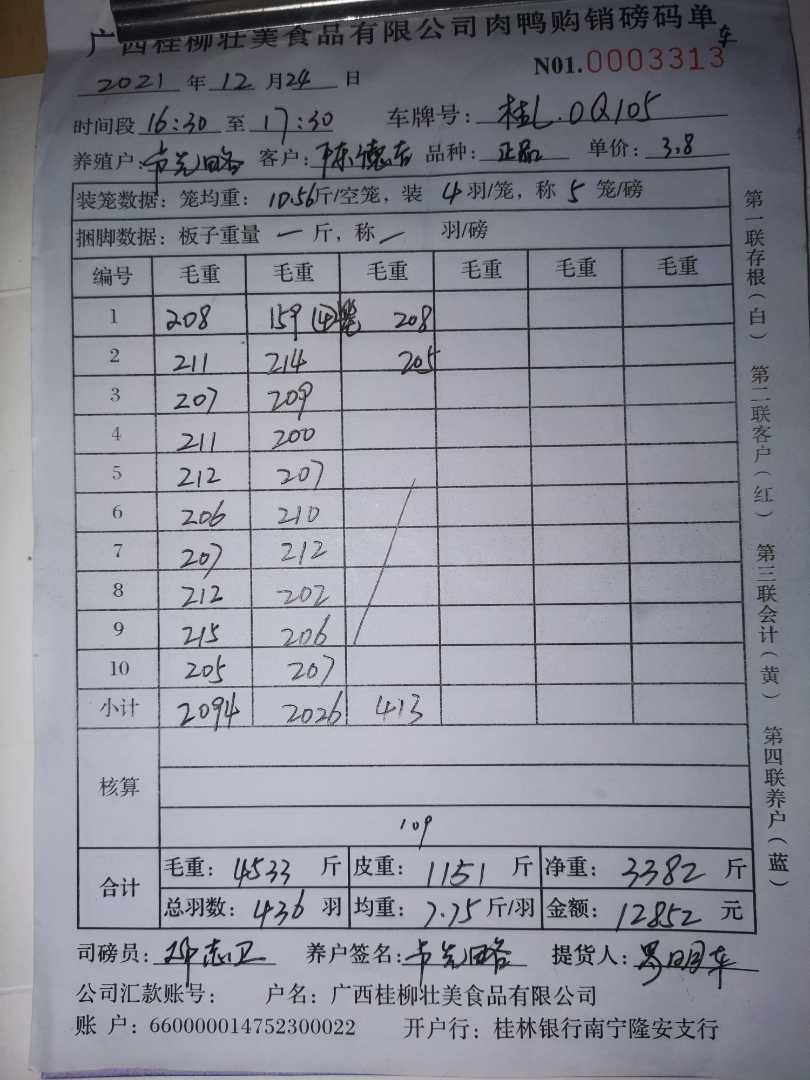 广西桂柳壮美食品有限公司肉鸭购销磅码单
2021 年 12 月 24 日 N01.0003313
时间段 16:30 至 17:30 车牌号: 桂L.0Q105
养殖户: 客户: 陈德 品种: 正品 单价: 3.8
装笼数据: 笼均重: 10.56斤/空笼, 装 4 羽/笼, 称 5 笼/磅
捆脚数据: 板子重量 一 斤, 称 一 羽/磅
编号 毛重 毛重 毛重 毛重 毛重 毛重
1 208 159 (4笼) 208
2 211 214 205
3 207 209
4 211 200
5 212 207
6 206 210
7 207 212
8 212 202
9 215 206
10 205 207
小计 2094 2026 413
核算
109
合计 毛重: 4533 斤 皮重: 1151 斤 净重: 3382 斤
总羽数: 436 羽 均重: 7.75 斤/羽 金额: 12852 元
司磅员: 志卫 养户签名: 提货人: 明
公司汇款账号: 户名: 广西桂柳壮美食品有限公司
账 户: 660000014752300022 开户行: 桂林银行南宁隆安支行
第一联存根(白) 第二联客户(红) 第三联会计(黄) 第四联养户(蓝)